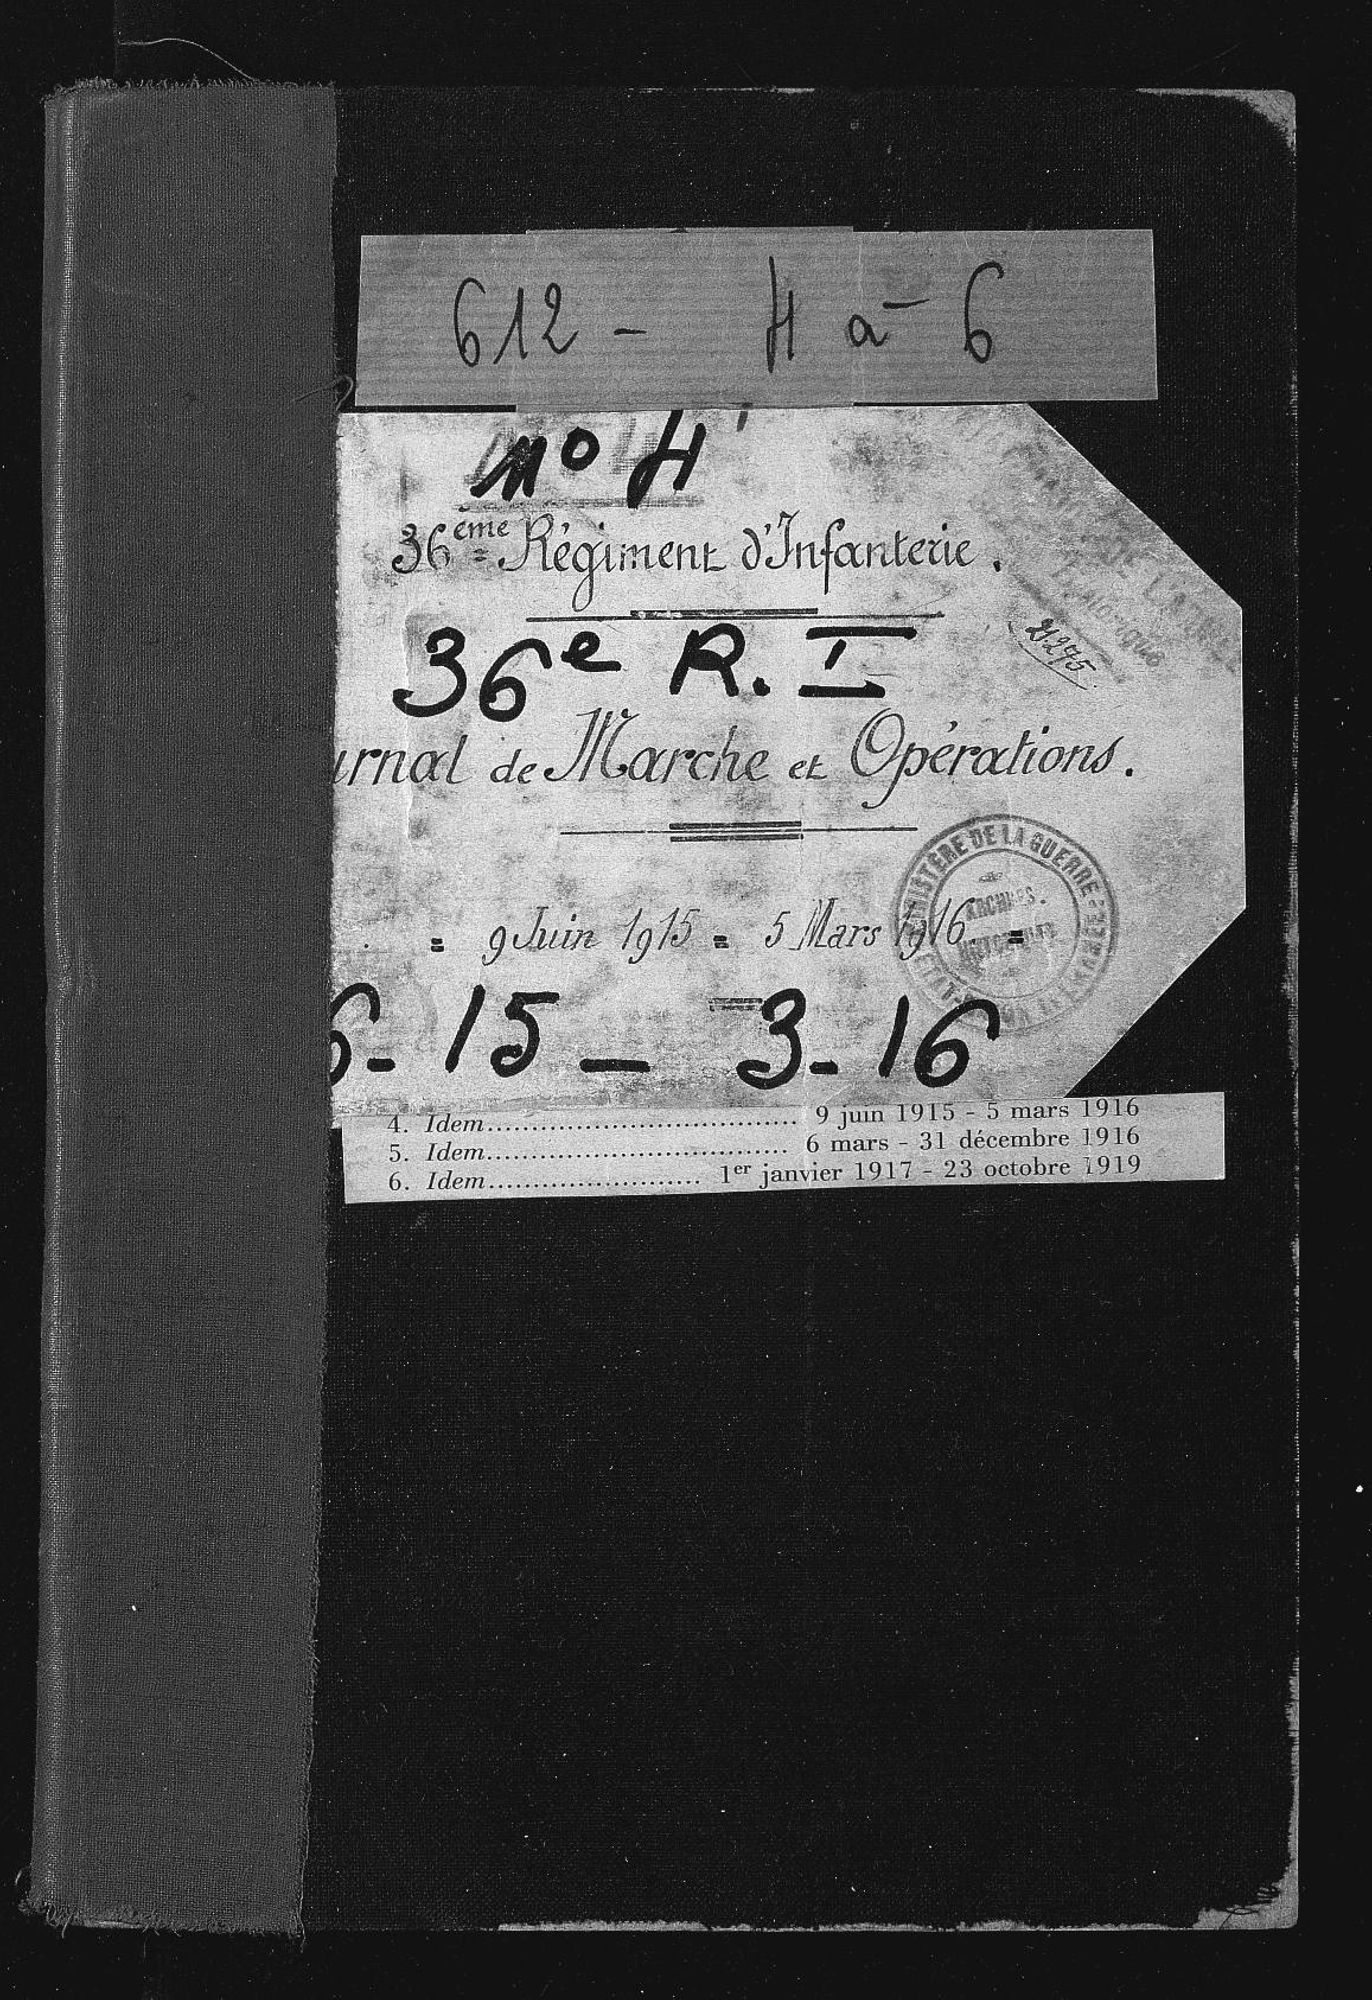 612 - 4 à 6
no 4
36ème Régiment d'Infanterie.
21.275
36e R. I
urnal de Marche et Opérations.
MINISTÈRE DE LA GUERRE
ARCHIVES
= 9 Juin 1915 = 5 Mars 1916 =
6-15 - 3-16
4. Idem.................................... 9 juin 1915 - 5 mars 1916
5. Idem................................... 6 mars - 31 décembre 1916
6. Idem........................ 1er janvier 1917 - 23 octobre 1919